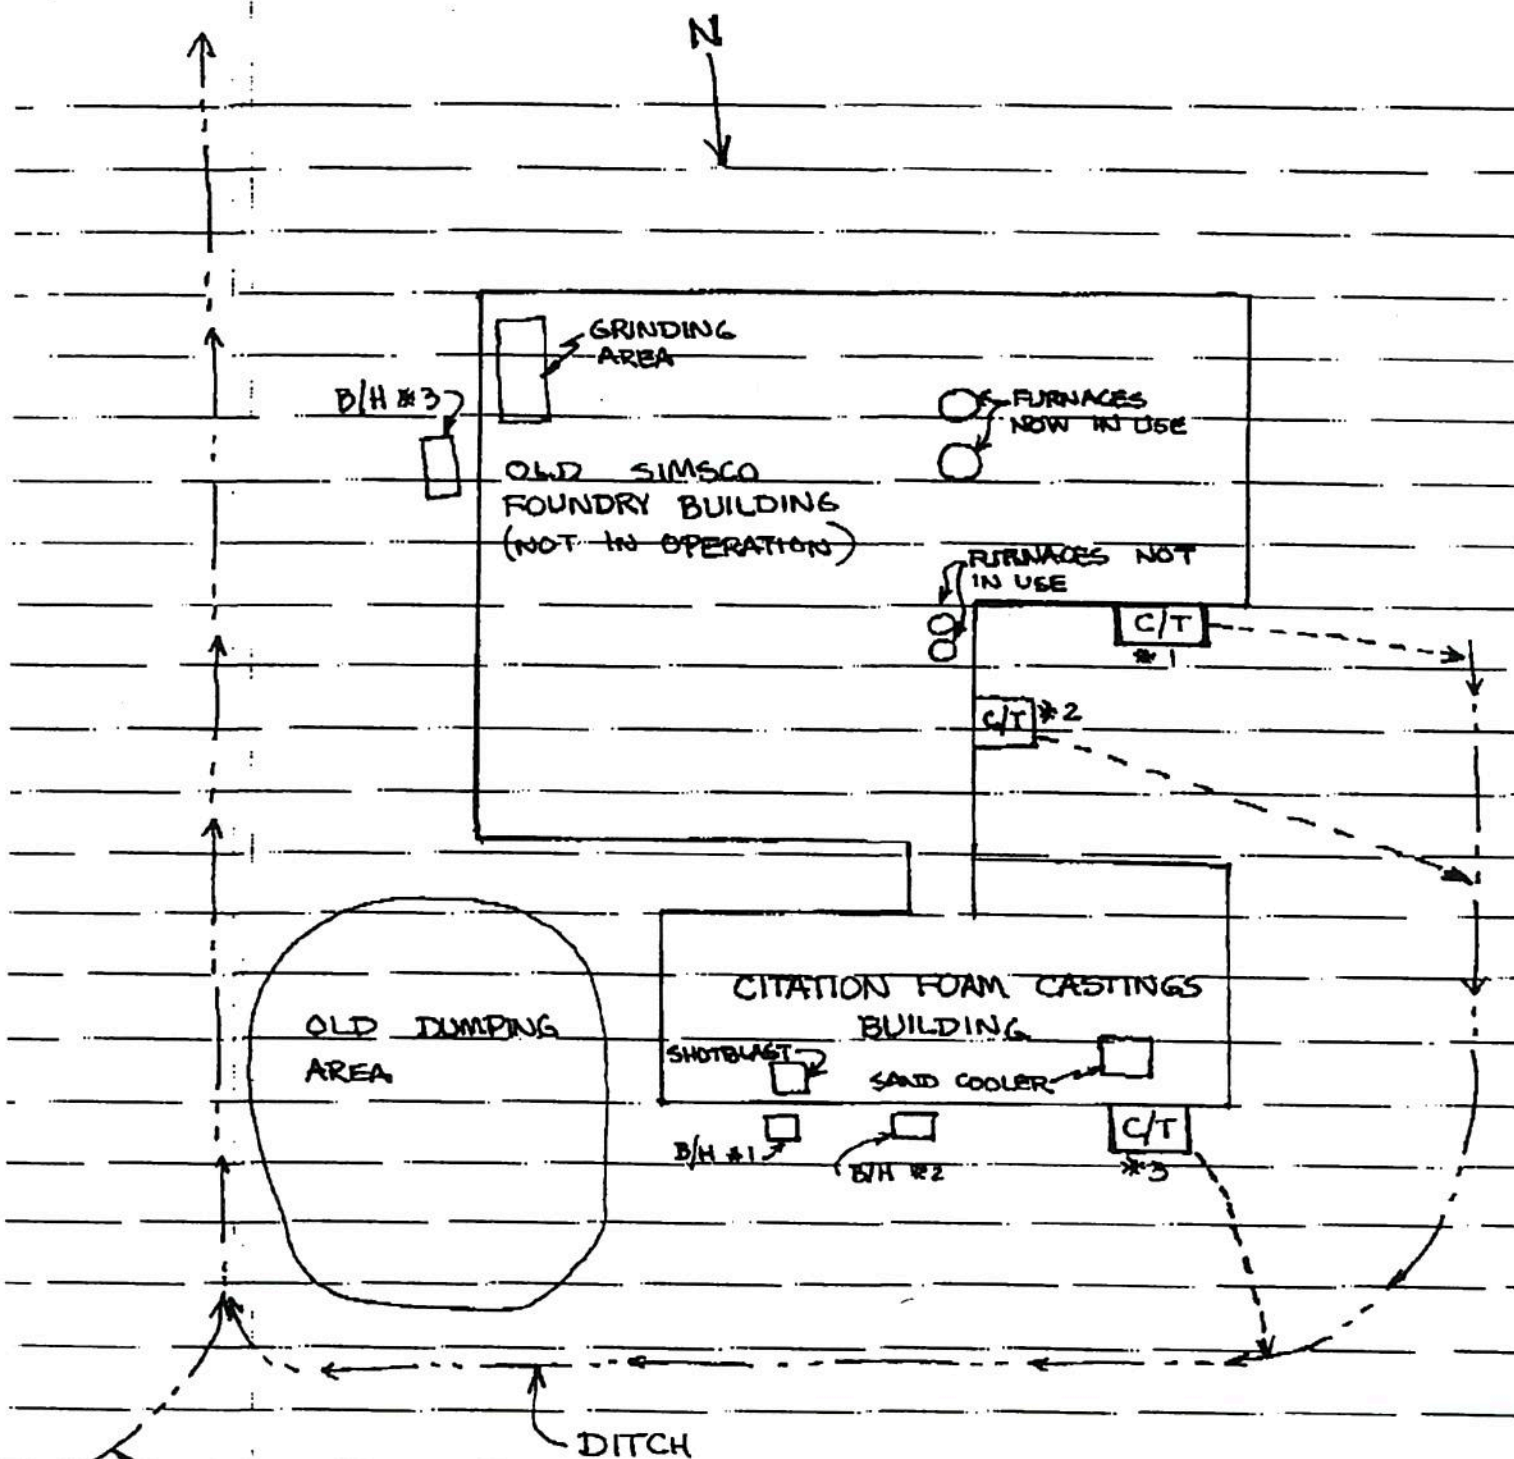 N
GRINDING
AREA
B/H #3
FURNACES
NOW IN USE
OLD SIMSCO
FOUNDRY BUILDING
(NOT IN OPERATION)
FURNACES NOT
IN USE
C/T
#1
C/T #2
CITATION FOAM CASTINGS
BUILDING
OLD DUMPING
AREA
SHOTBLAST
SAND COOLER
C/T
#3
B/H #1
B/H #2
DITCH